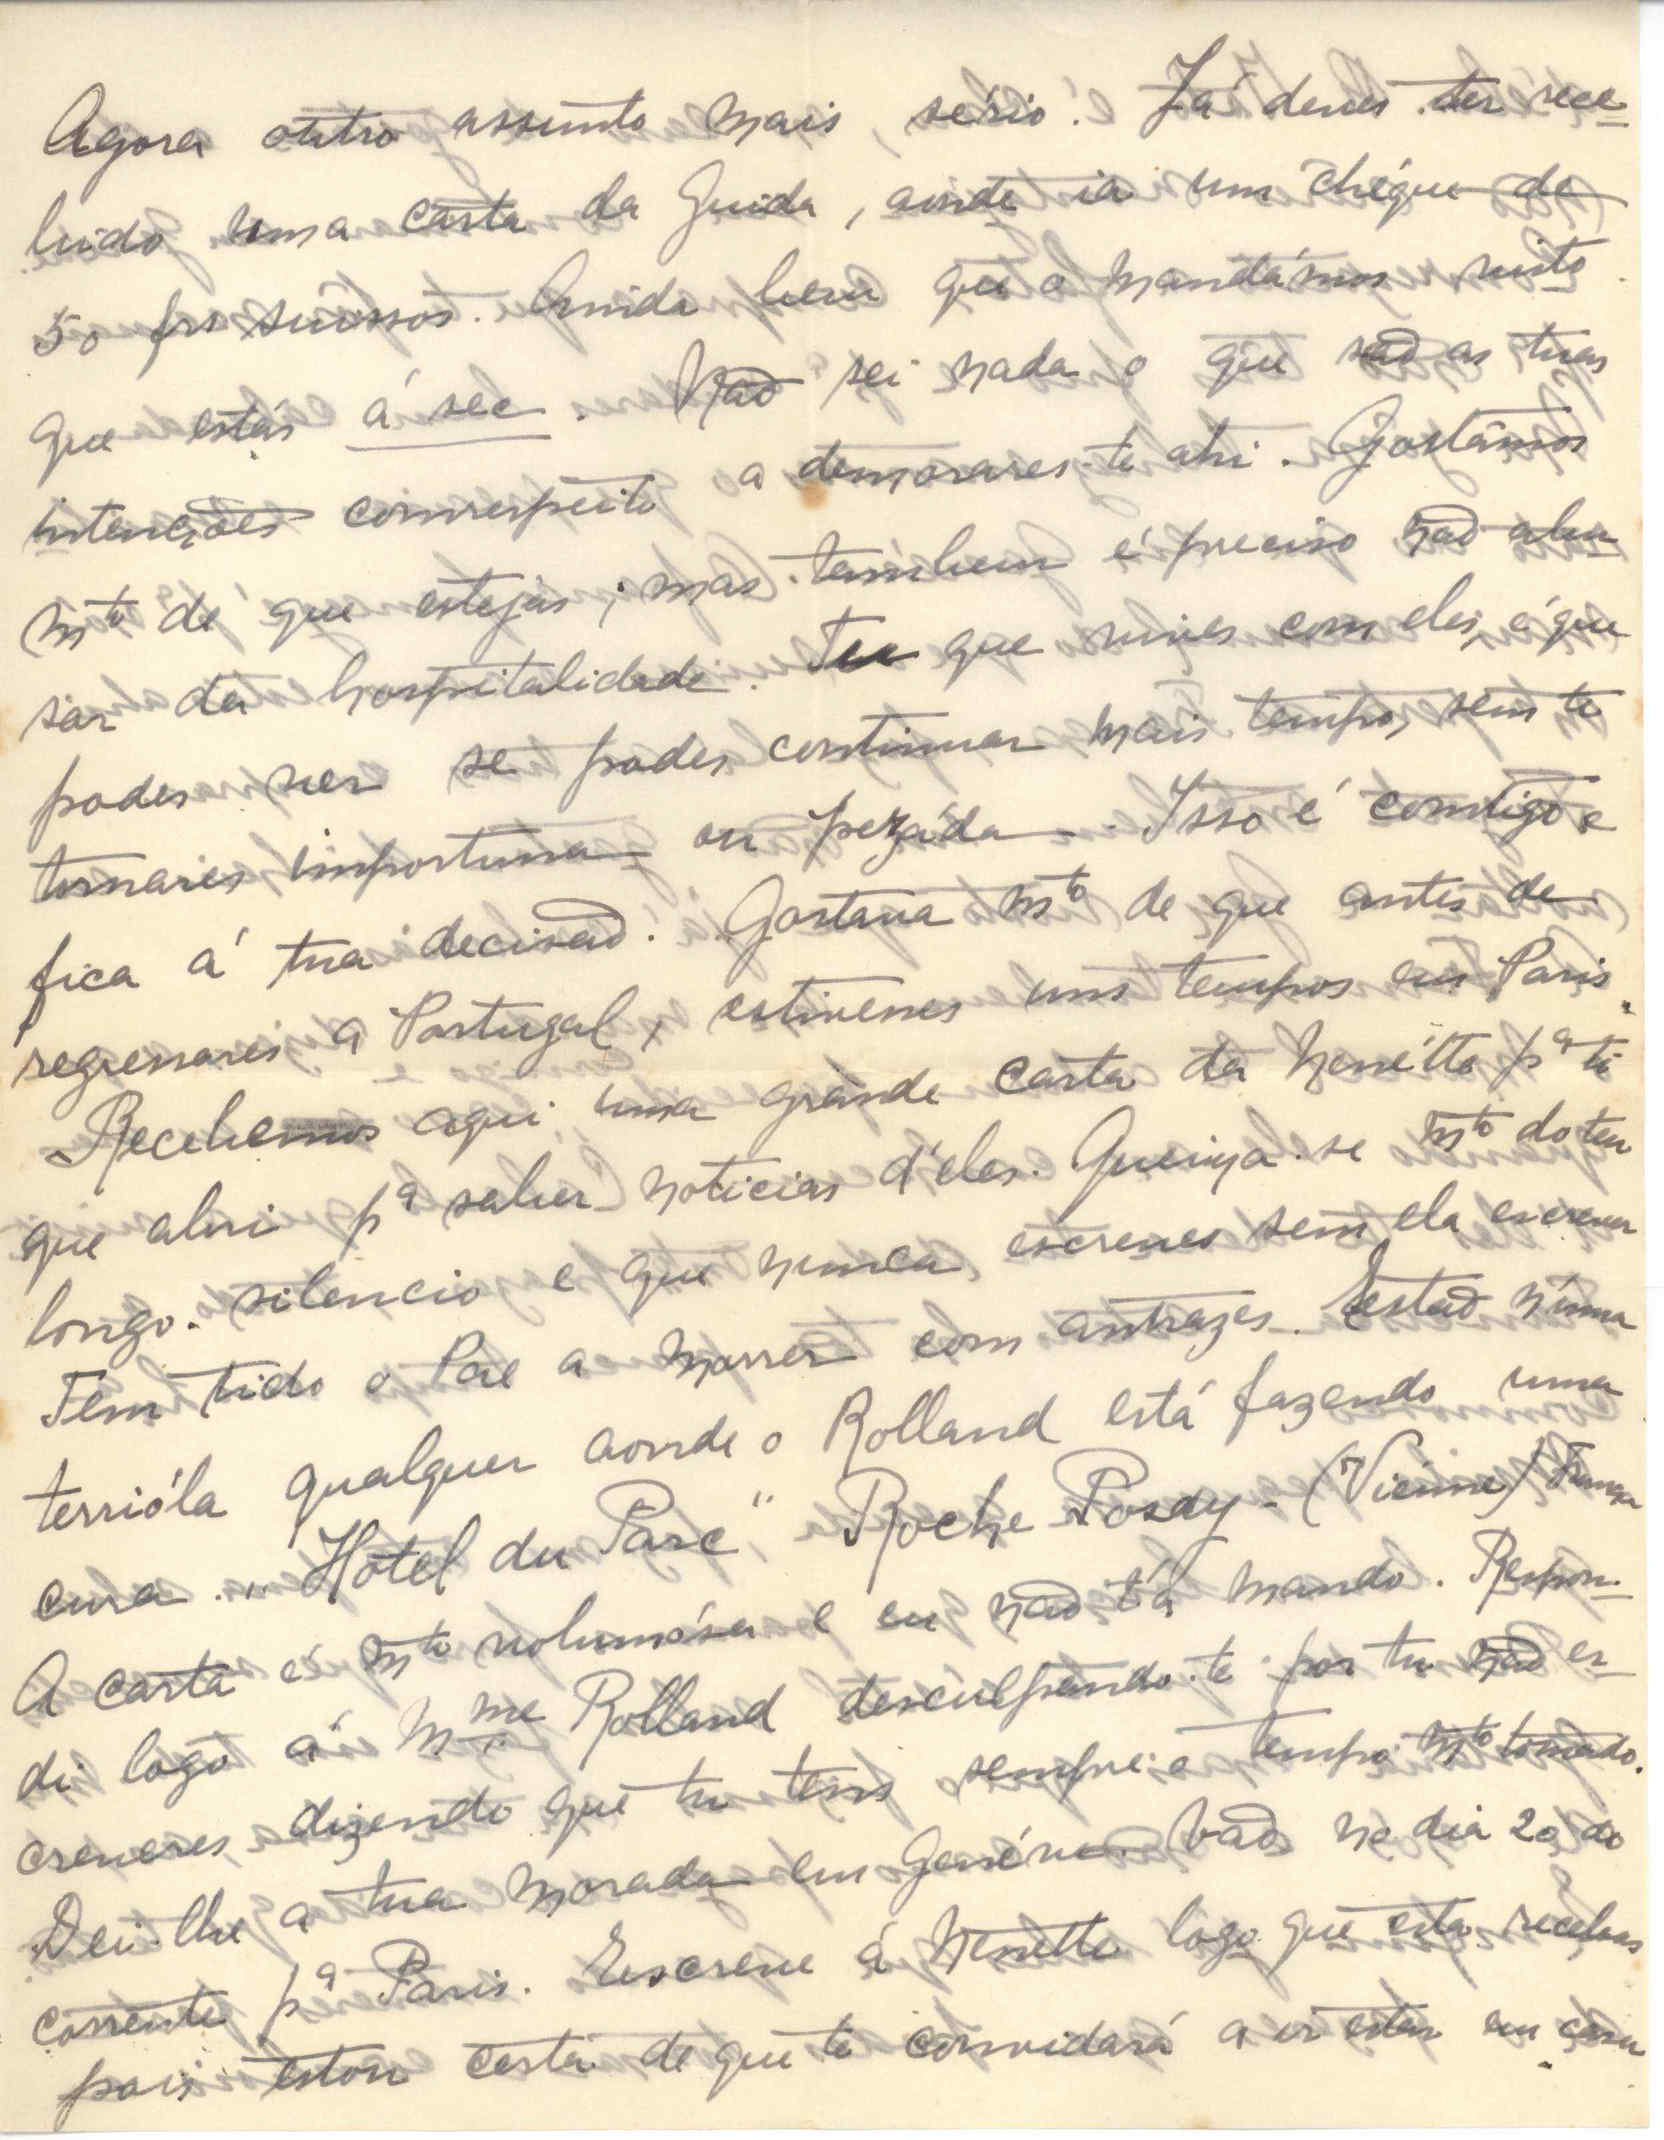 Agora outro assunto mais, sério. Já deves ter rece-
bido uma carta da Guida, aonde ia um chéque de
50 frs suissos. Ainda bem que o mandámos visto
que estás á sec. Não sei nada o que são as tuas
intenções com respeito a demorares-te ahi. Gostâmos
mto de que estejas; mas tambem é preciso não abu
sar da hospitalidade. Tu que vives com eles, é que
podes ver se podes continuar mais tempo, sem te
tornares importuna ou pezáda. Isso é comtigo e
fica á tua decisão. Gostava mto de que antes de
regressares a Portugal, estivesses uns tempos em Paris.
Recebemos aqui uma grande carta da Nenétte pa ti
que abri pa saber noticias d'eles. Queixa-se mto do teu
longo silencio e que nunca escreves sem ela escrever
Tem tido o Pae a morrer com antrazes. Estão n'uma
terrióla qualquer aonde o Rolland está fazendo uma
cura. "Hotel du Parc" Roche Posay - (Viénne) França
A carta é mto volumósa e eu não t'a mando. Respon-
di logo á Mme Rolland desculpando-te por tu não es-
creveres, dizendo que tu tens sempre o tempo mto tomado.
Dei-lhe a tua morada em Genéve. Vão, no dia 20 do
corrente pa Paris. Escreve á Nenette logo que esta recebas
pois estou certa de que te convidará a ir estar em casa